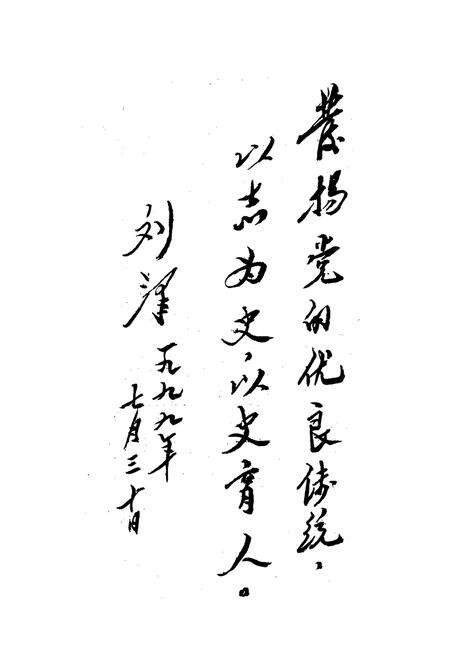 發扬党的优良传统，
以志为史，以史育人。
刘泽
一九九九年
七月三十日